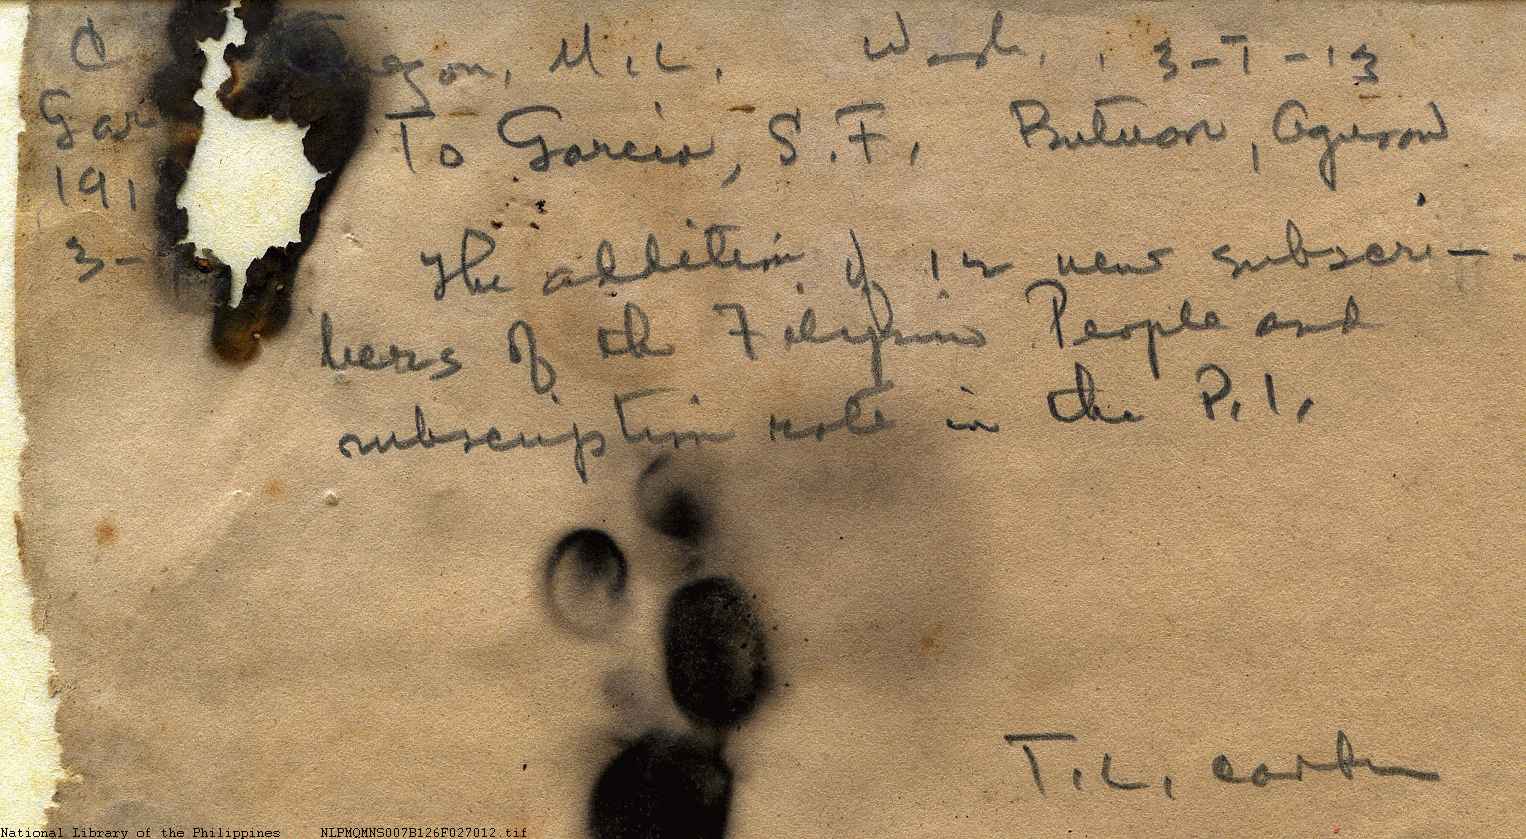 C
Gar
191
3-
ezon, M.L. Wash., 3-7-13
To Garcia, S.F. Butuan, Agusan
The addition of 12 new subscri-
bers of the Filipino People and
subscription rate in the P.I.
T.L. carbon
National Library of the Philippines NLPMQMNS007B126F027012.tif